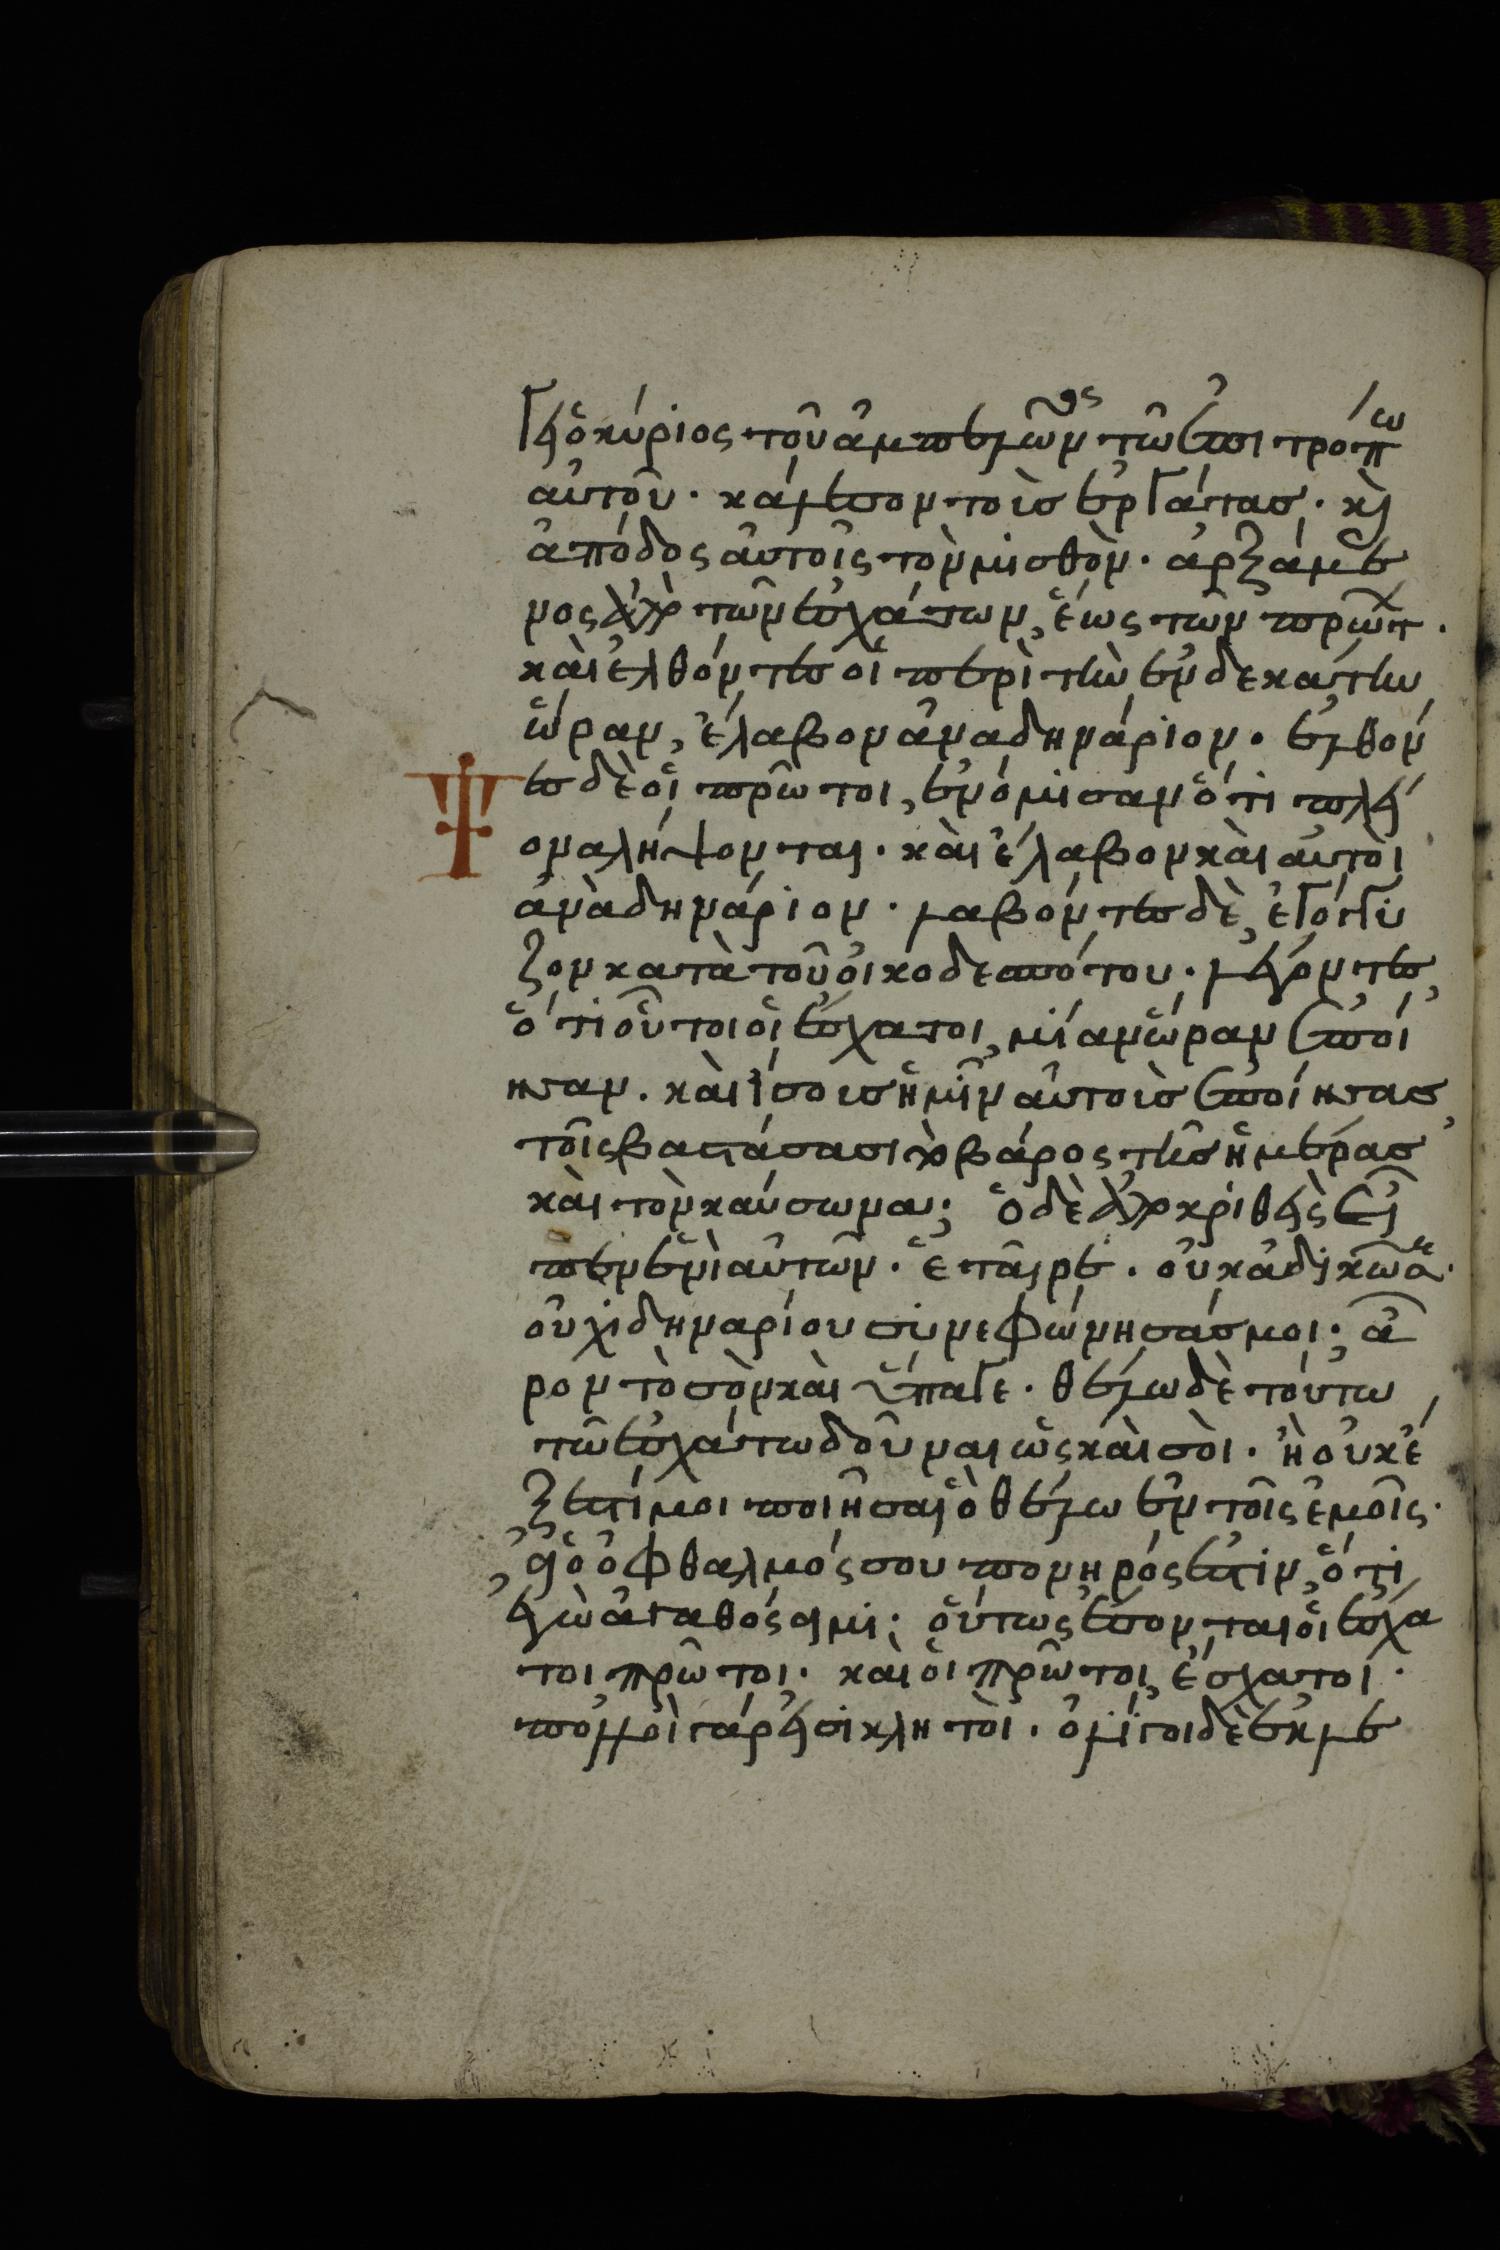 γει ὁ κύριος τοῦ ἀμπελῶνος τῶ ἐπιτρόπω
αὐτοῦ· κάλεσον τοὺσ ἐργάτασ· κὶ
ἀπόδος αὐτοῖς τὸν μισθὸν· ἀρξάμε
νος ἀπὸ τῶν ἐσχάτων, ἕως τῶν πρώτ·
καὶ ἐλθόντεσ οἱ περὶ τὴν ἑνδεκάτην
ὥραν, ἔλαβον ἀνὰ δηνάριον· ἐλθόν
τεσ δὲ οἱ πρῶτοι, ἐνόμισαν ὅτι πλεί
ονα λήψονται· καὶ ἔλαβον καὶ αὐτοὶ
ἀνὰ δηνάριον· λαβόντεσ δὲ, ἐγόγγυ
ζον κατὰ τοῦ οἰκοδεσπότου· λέγοντεσ,
ὅτι οὗτοι οἱ ἔσχατοι, μίαν ὥραν ἐποί
ησαν. καὶ ἴσουσ ἡμῖν αὐτοὺσ ἐποίησασ,
τοῖς βαστάσασι τὸ βάρος τῆσ ἡμέρασ
καὶ τὸν καύσωνα; ὁ δὲ ἀποκριθεὶς εἶ
πεν ἑνὶ αὐτῶν· ἑταῖρε· οὐκ ἀδικῶ σε·
οὐχὶ δηναρίου συνεφώνησάσ μοι; ἆ
ρον τὸ σὸν καὶ ὕπαγε· θέλω δὲ τούτω
τῶ ἐσχάτω δοῦναι ὡς καὶ σοὶ· ἢ οὐκ ἔ
ξεστί μοι ποιῆσαι ὃ θέλω ἐν τοῖς ἐμοῖς·
εἰ ὁ ὀφθαλμός σου πονηρός ἐστιν, ὅτι
ἐγὼ ἀγαθός εἰμι; οὕτως ἔσονται οἱ ἔσχα
τοι πρῶτοι· καὶ οἱ πρῶτοι, ἔσχατοι·
πολλοὶ γάρ εἰσι κλητοὶ· ὀλίγοι δὲ ἐκλε